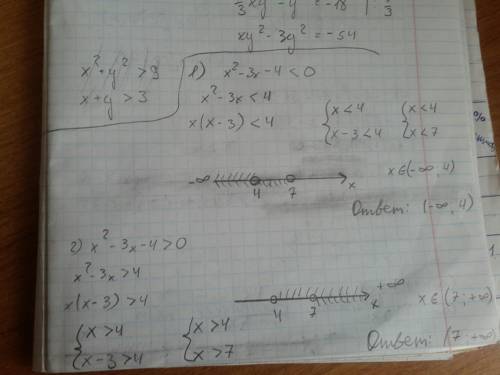 xy² - 3y² = -54
x² + y² > 9
x + y > 3
1) x² - 3x - 4 < 0
x² - 3x < 4
x(x - 3) < 4
{ x < 4
x - 3 < 4
{ x < 4
x < 7
-∞ 4 7 x
x ∈ (-∞, 4)
Ответ: (-∞, 4)
2) x² - 3x - 4 > 0
x² - 3x > 4
x(x - 3) > 4
{ x > 4
x - 3 > 4
{ x > 4
x > 7
4 7 x +∞
x ∈ (7; +∞)
Ответ: (7 +∞)